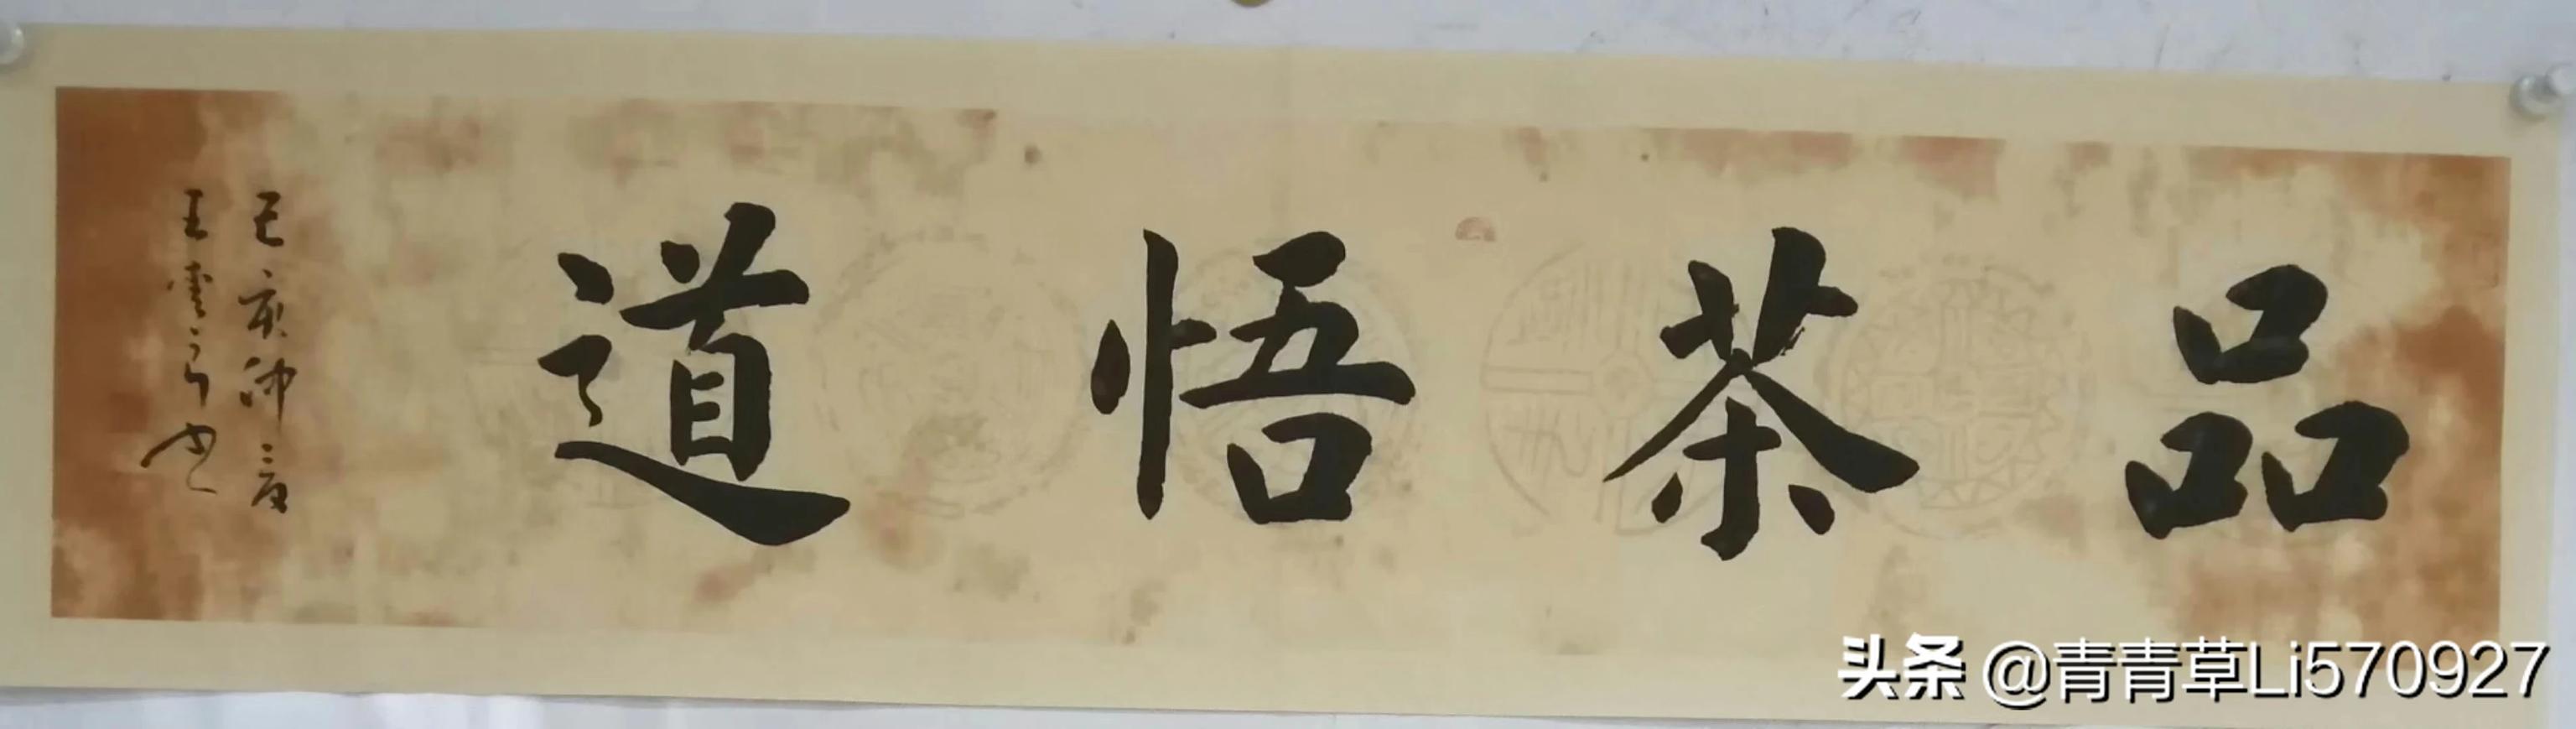 品茶悟道
己亥仲夏
王雲
头条 @青青草Li570927